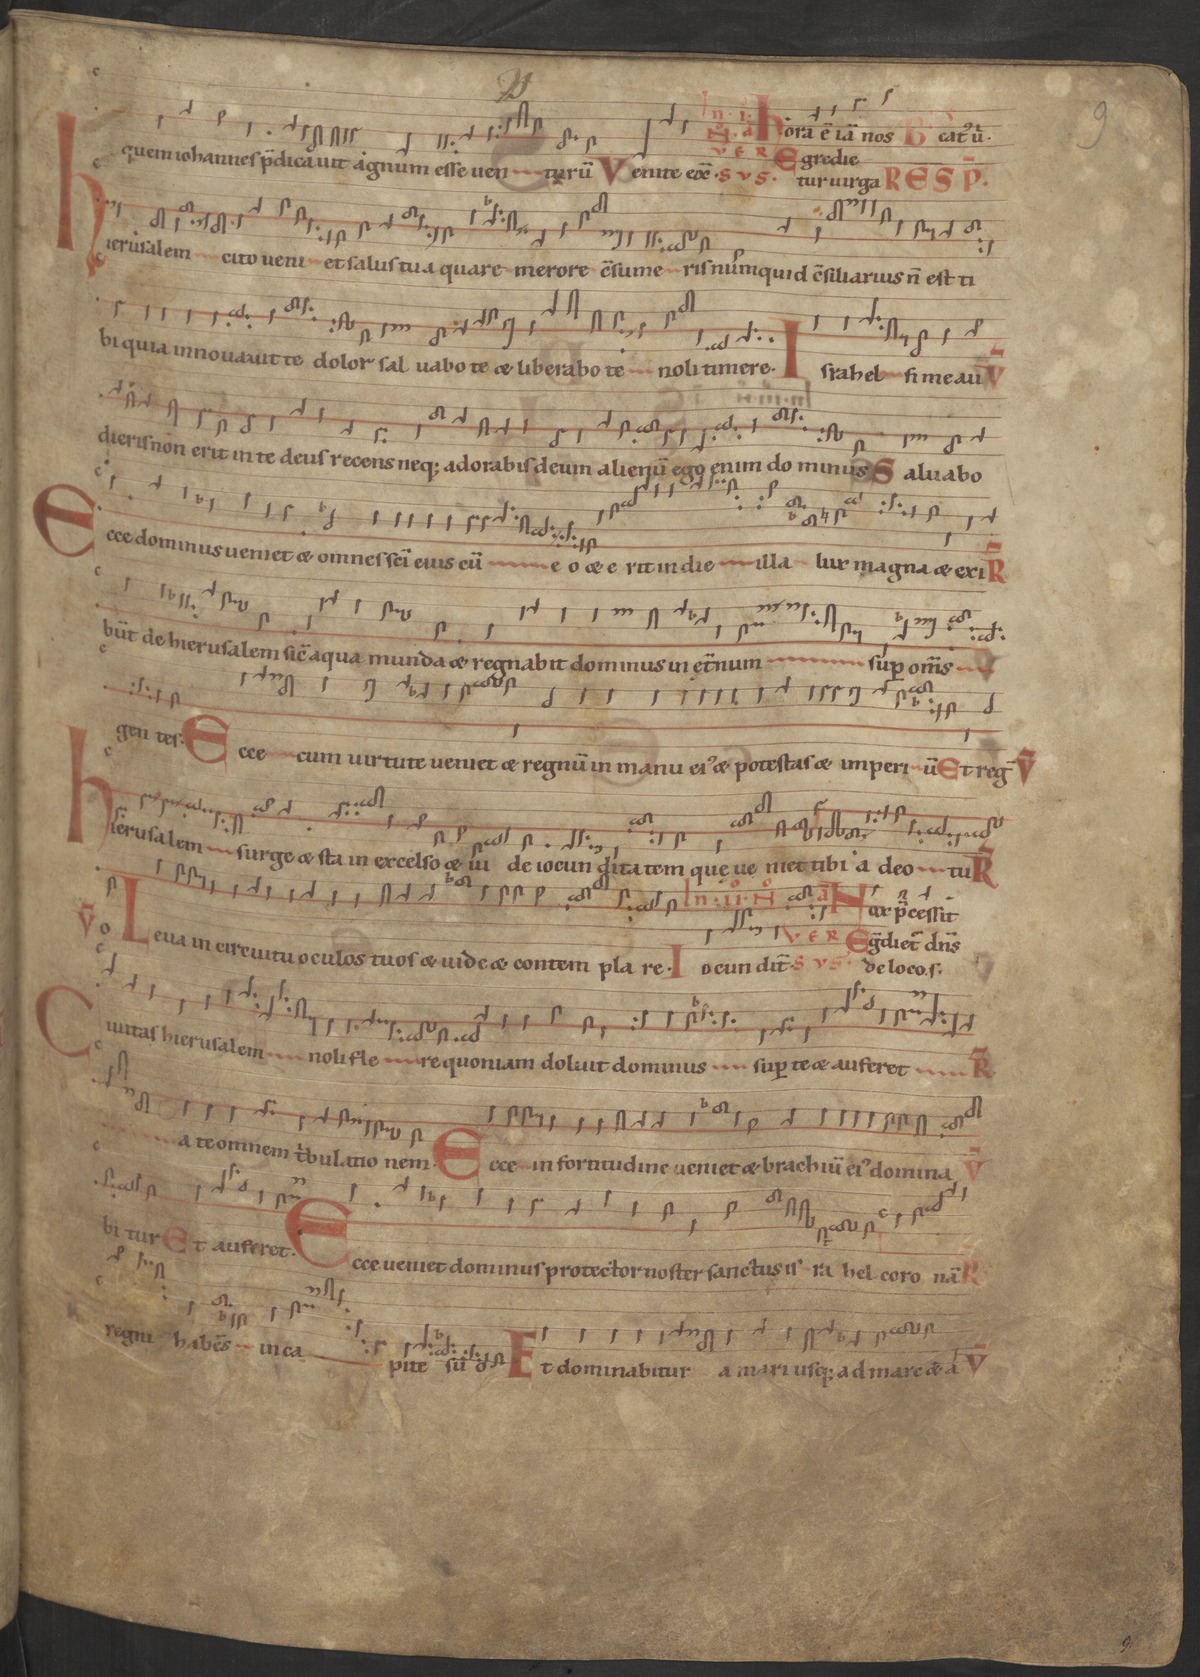 9
In .i. N. a hora ē iā nos B eat᷒ u̅.
quem iohannes p̄dicavit agnum esse ven turū Venite exē VERSVS. Egredie
tur virga RESP̄.
hierusalem cito veni et salus tua quare merore c̄sume ris numquid c̄siliarius n̄ est ti
bi quia innovavit te dolor sal vabo te æ liberabo te noli timere. Israhel si me au V̄
dieris non erit in te deus recens neq; adorabis deum alienū ego enim do minus Salvabo
Ecce dominus veniet æ omnes sc̄i eius cū e o æ e rit in die illa lux magna æ exi R̄
būt de hierusalem sic̄ aqua munda æ regnabit dominus in et̄num sup om̄s
gen tes. Ecce cum virtute veniet æ regnū in manu ei᷒ æ potestas æ imperi ū Et reg̅ V̄
hierusalem surge æ sta in excelso æ vi de iocun ditatem que ve niet tibi a deo tu R̄
o V̄ Leva in circuitu oculos tuos æ vide æ contem pla re. Iocundit̄. In .ii. N. a Nox p̄cessit
VERSVS. Eg̅diet̄ dn̄s
de loco .s.
Civitas hierusalem noli fle re quoniam doluit dominus sup te æ auferet R̄
a te omnem t̄bulatio nem. Ecce in fortitudine veniet æ brachiū ei᷒ domina V̄
bi tur Et auferet. Ecce veniet dominus protector noster sanctus is ra hel coro nā R̄
regni habēs in ca pite su o Et dominabitur a mari usq; ad mare æ a V̄
9